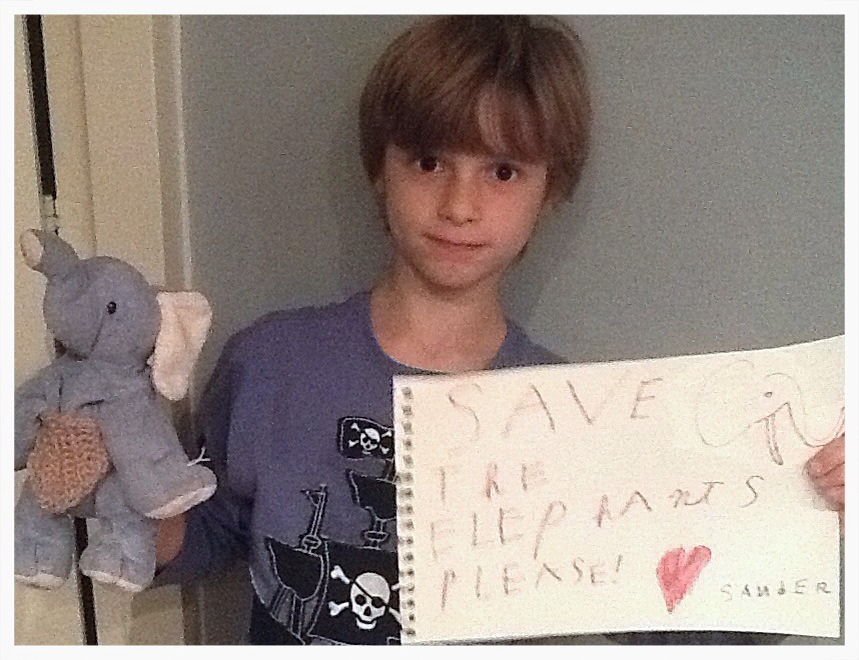 SAVE
THE
ELEPHANTS
PLEASE!
SANDER